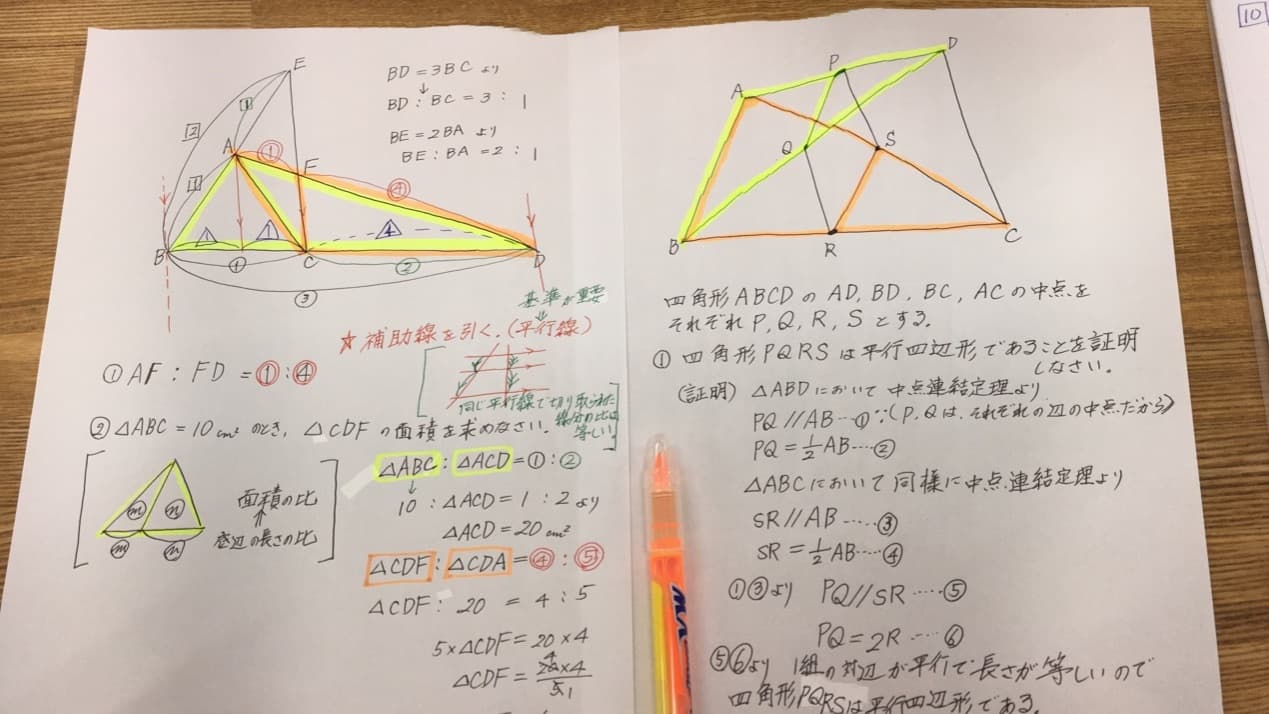 E
2
1
A
①
F
④
1
B
1
1
4
C
D
①
②
③
BD = 3BC より
↓
BD : BC = 3 : 1
BE = 2BA より
BE : BA = 2 : 1
基準が重要
↓
★ 補助線を引く。(平行線)
同じ平行線で切り取られた
線分の比は
等しい。
① AF : FD = ① : ④
② △ABC = 10cm² のとき, △CDF の面積を求めなさい。
m n
m n
面積の比
↑
底辺の長さの比
△ABC : △ACD = ① : ②
↓
10 : △ACD = 1 : 2 より
△ACD = 20cm²
△CDF : △CDA = ④ : ⑤
△CDF : 20 = 4 : 5
5×△CDF = 20×4
△CDF = 20×4/5
4
1
D
P
A
Q
S
B
R
C
四角形ABCDのAD, BD, BC, ACの中点を
それぞれP, Q, R, Sとする。
① 四角形PQRSは平行四辺形であることを証明
しなさい。
(証明) △ABDにおいて中点連結定理より
PQ // AB … ① ∵(P, Qは、それぞれの辺の中点だから)
PQ = 1/2 AB … ②
△ABCにおいて同様に中点連結定理より
SR // AB …… ③
SR = 1/2 AB …. ④
①③より PQ // SR ….. ⑤
PQ = 2R …. ⑥
⑤⑥より 1組の対辺が平行で長さが等しいので
四角形PQRSは平行四辺形である。
10